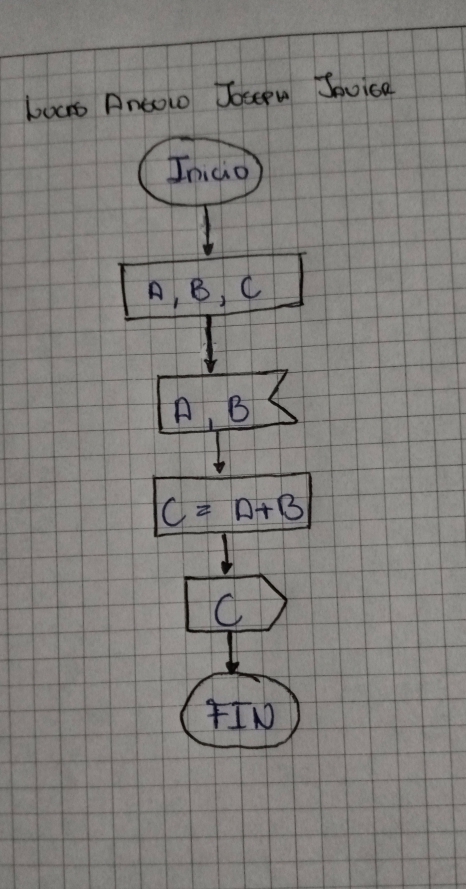 Lucas Angulo Joseph Javier
Inicio
A, B, C
A, B
C = A+B
C
FIN